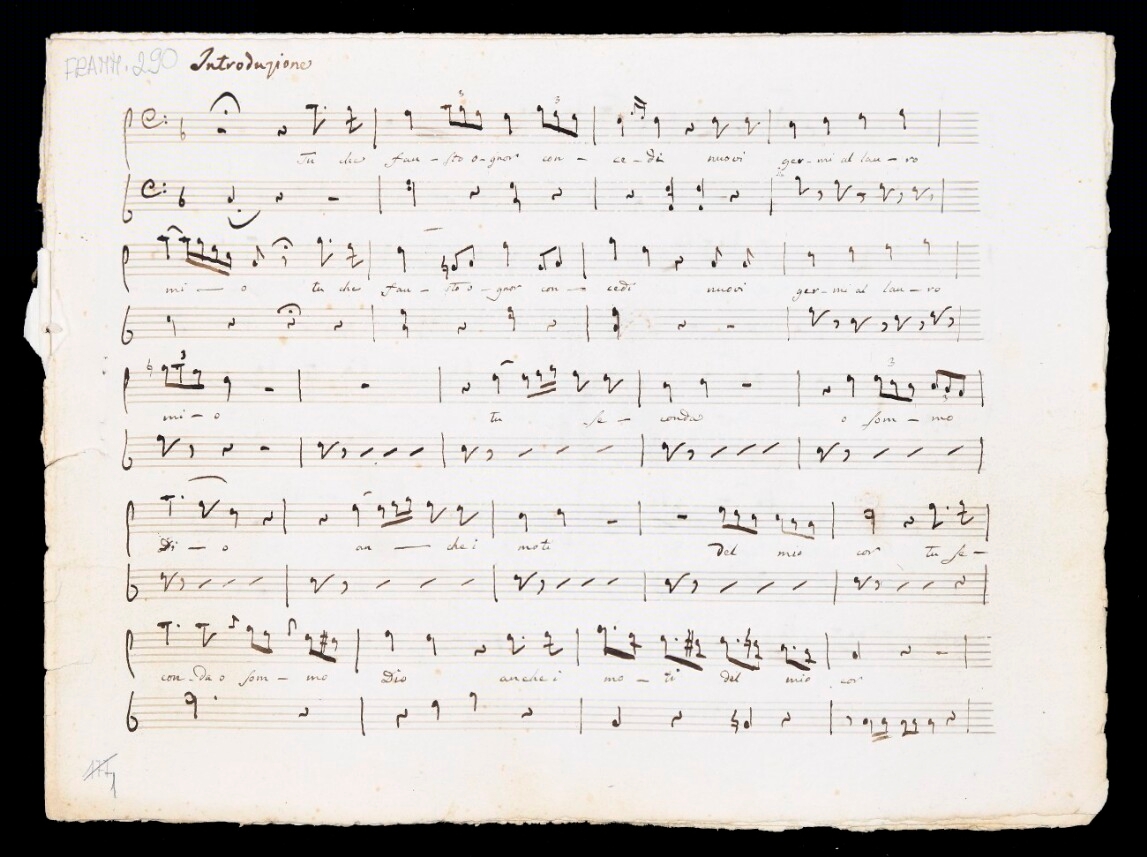 FRAMM. 290 Introduzione
3 3
Tu che fau - sto o - gnor con - ce - di nuovi ger - mi al lau - ro
mi - o tu che fau - sto o - gnor con - cedi nuovi ger - mi al lau - ro
3 3
mi - o tu se - conda o som - mo
3
Di - o an - che i moti del mio cor tu se -
con - da o som - mo Dio anche i mo - ti del mio cor